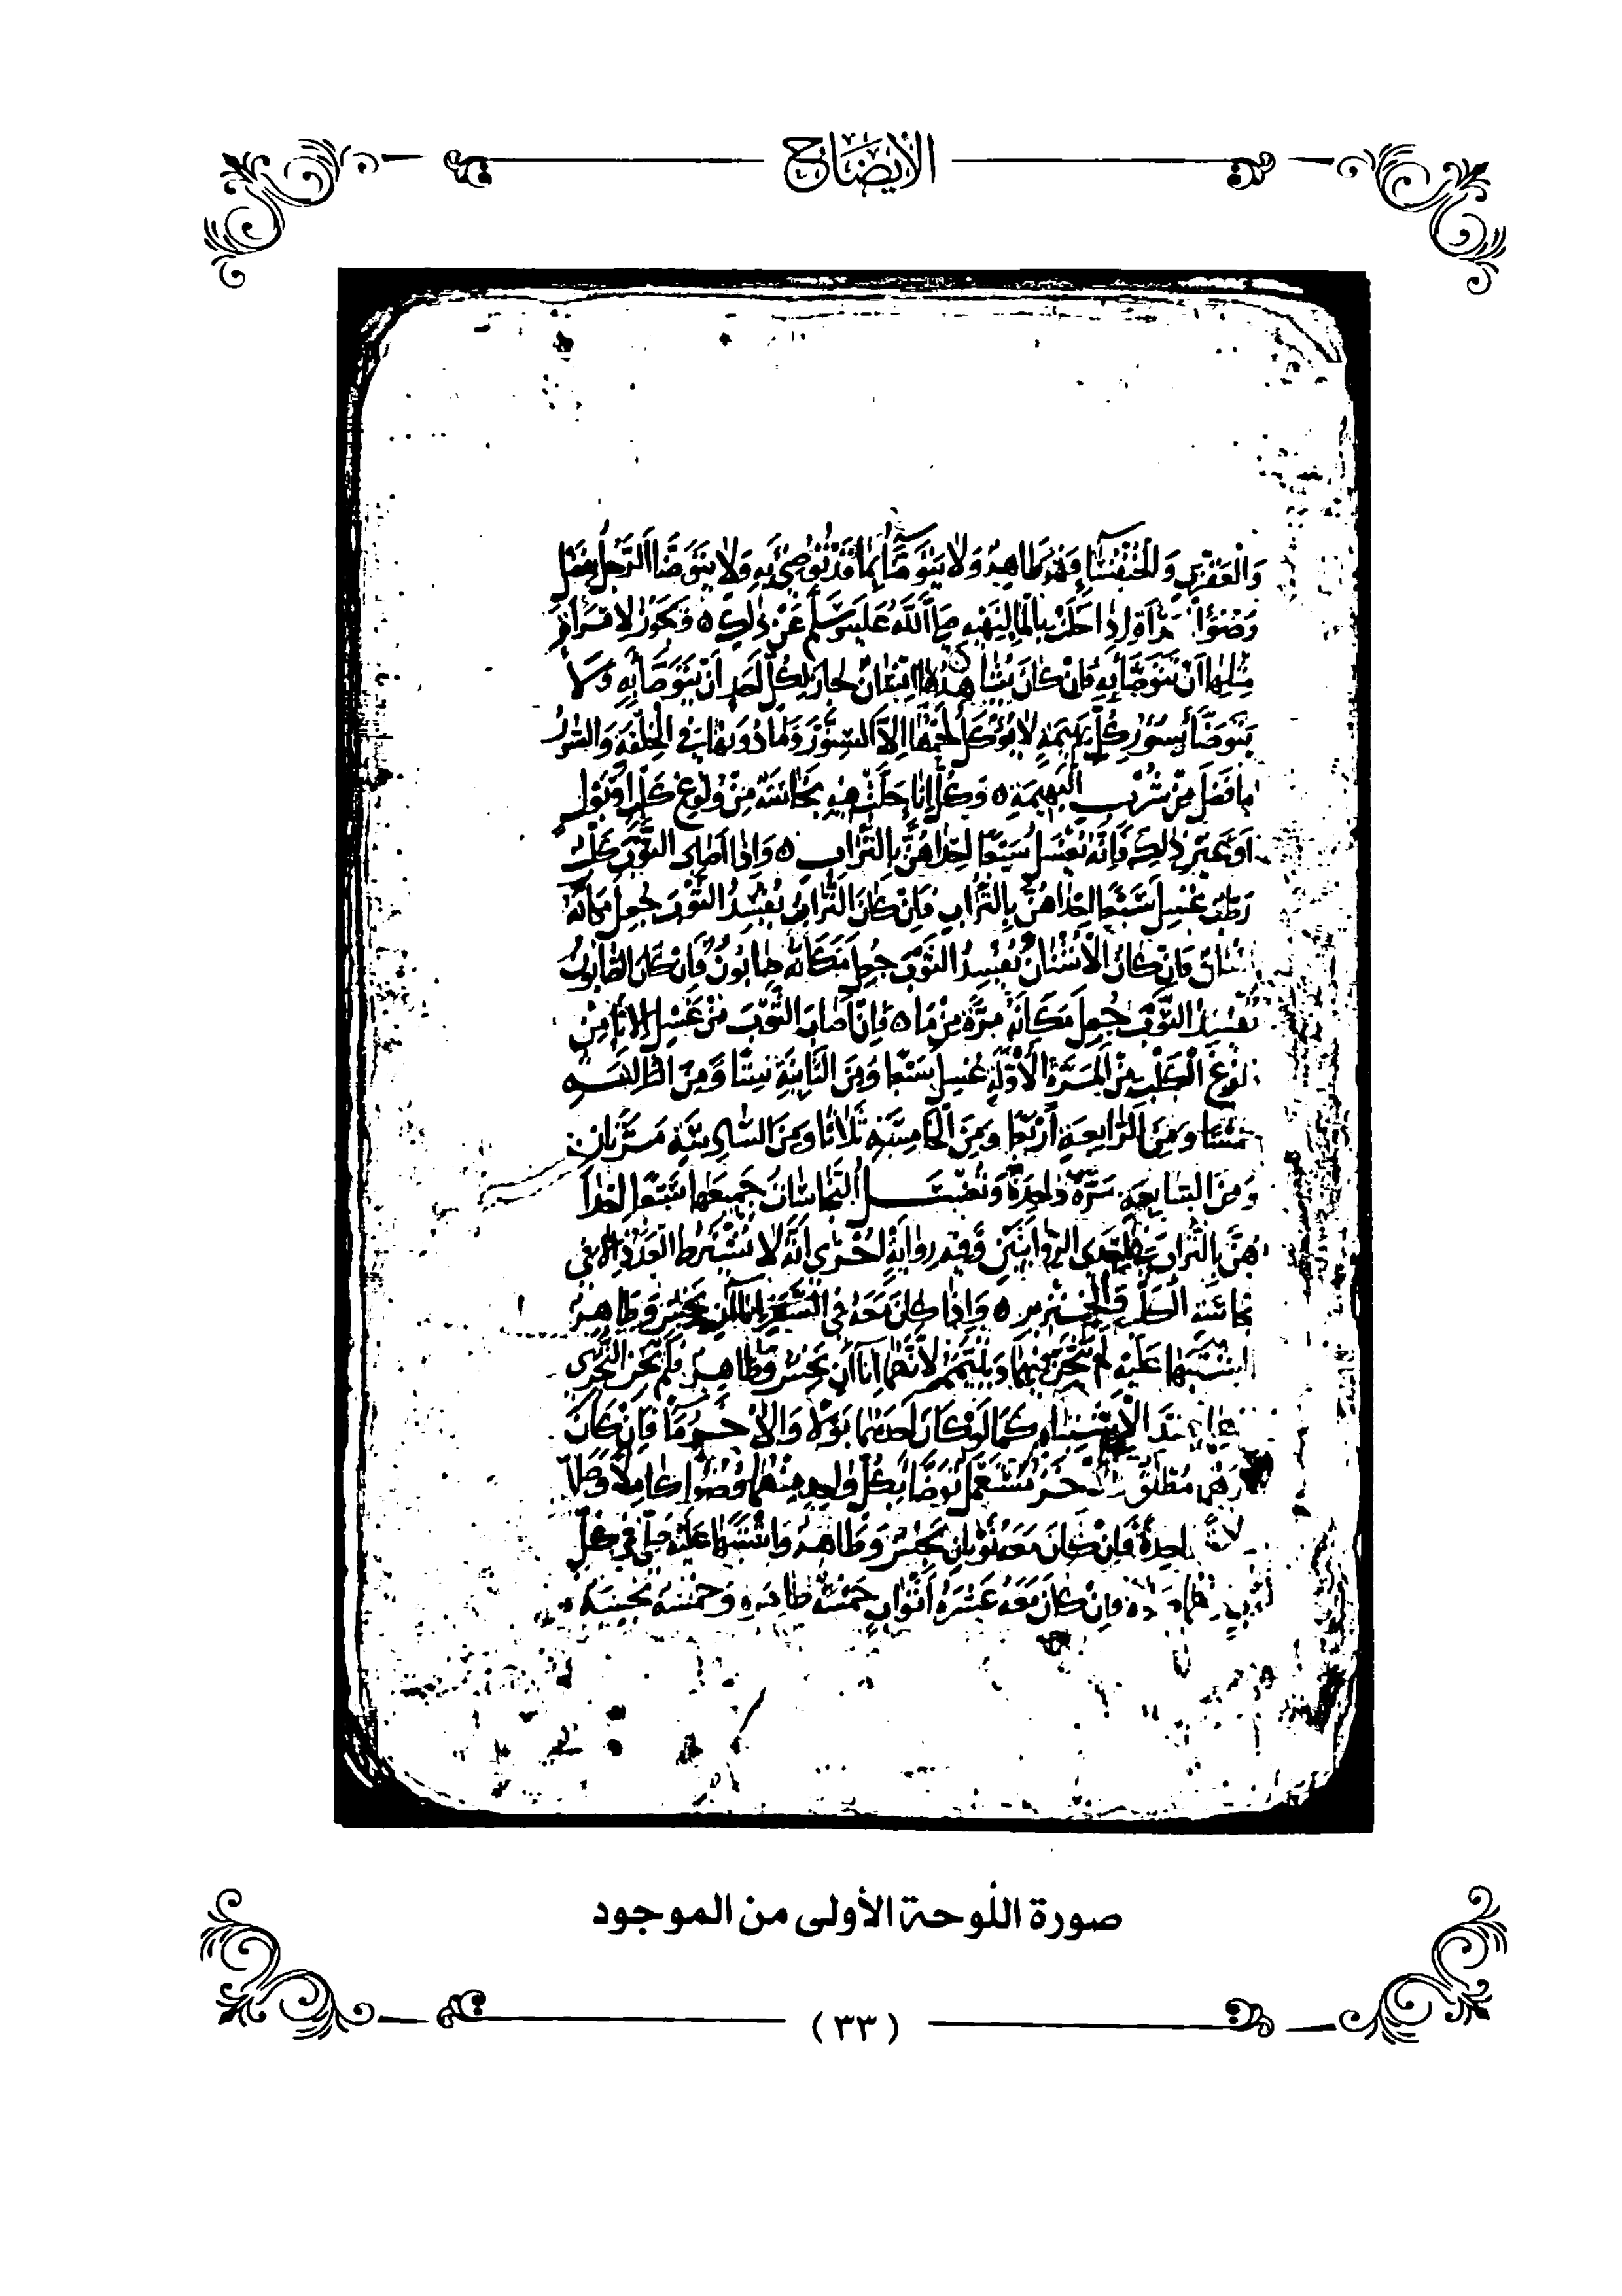 الإيضاح
والعقرب والخنفساء فهو طاهر ولا يتوضأ بما قد توضئ به ولا يتوضأ الرجل بفضل
وضوء المرأة إذا خلت بالماء لنهيه صلى الله عليه وسلم عن ذلك ويجوز لامرأة
مثلها أن تتوضأ به فإن كان يشاهدها اثنان جاز لكل أحد أن يتوضأ به ولا
يتوضأ بسؤر كل بهيمة لا يؤكل لحمها إلا السنور وما دونها في الخلقة والسؤر
ما فضل من شرب البهيمة وكل إناء حلت فيه نجاسة من ولوغ كلب أو بول
أو غير ذلك فإنه يغسل سبعا إحداهن بالتراب وإذا أصاب الثوب كلب
رطب غسل سبعا إحداهن بالتراب فإن كان التراب يفسد الثوب جعل مكانه
أشنان فإن كان الأشنان يفسد الثوب جعل مكانه صابون فإن كان الصابون
يفسد الثوب جعل مكانه مرة من ماء فإن أصاب الثوب من غسل الإناء من
ولوغ الكلب من المرة الأولة غسل سبعا ومن الثانية ستا ومن الثالثة
خمسا ومن الرابعة أربعا ومن الخامسة ثلاثا ومن السادسة مرتان
ومن السابعة مرة واحدة وتغسل النجاسات جميعها سبعا إحدا
هن بالتراب في إحدى الروايتين وفيه رواية أخرى أنه لا يشترط العدد إلا في
نجاسة الكلب والخنزير وإذا كان معه في السفر إناآن نجس وطاهر
واشتبها عليه لم يتحر فيهما ويتيمم لأنهما إناآن نجس وطاهر فلم يجز التحري
فيهما عند الاشتباه كما لو كان أحدهما بولا والآخر ماء فإن كان
مطلق والآخر مستعمل توضأ بكل واحد منهما وضوءا كاملا وصلى
صلاة واحدة فإن كان معه ثوبان نجس وطاهر واشتبها عليه صلى في كل
ثوب فإن كان معه عشرة أثواب خمسة طاهرة وخمسة نجسة
صورة اللوحة الأولى من الموجود
(٣٣)